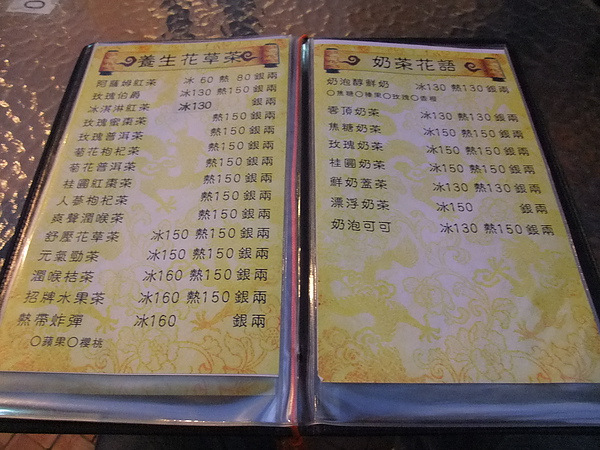 養生花草茶
阿薩姆紅茶 冰 60 熱 80 銀兩
玫瑰伯爵 冰130 熱150 銀兩
冰淇淋紅茶 冰130 銀兩
玫瑰蜜棗茶 熱150 銀兩
玫瑰普洱茶 熱150 銀兩
菊花枸杞茶 熱150 銀兩
菊花普洱茶 熱150 銀兩
桂圓紅棗茶 熱150 銀兩
人蔘枸杞茶 熱150 銀兩
爽聲潤喉茶 熱150 銀兩
舒壓花草茶 冰150 熱150 銀兩
元氣勁茶 冰150 熱150 銀兩
潤喉桔茶 冰160 熱150 銀兩
招牌水果茶 冰160 熱150 銀兩
熱帶炸彈 冰160 銀兩
○蘋果○櫻桃
奶茶花語
奶泡醇鮮奶 冰130 熱130 銀兩
○焦糖○榛果○玫瑰○香橙
零頂奶茶 冰130 熱130 銀兩
焦糖奶茶 冰150 熱150 銀兩
玫瑰奶茶 冰150 熱150 銀兩
桂圓奶茶 冰150 熱150 銀兩
鮮奶蓋茶 冰130 熱130 銀兩
漂浮奶茶 冰150 銀兩
奶泡可可 冰130 熱150 銀兩